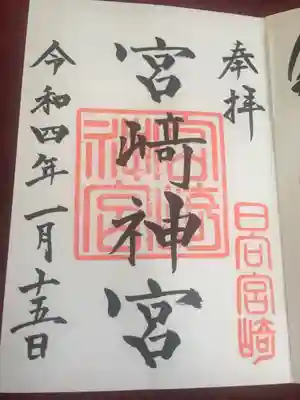 奉拝
日向宮崎
宮﨑神宮
宮﨑神宮
令和四年一月十五日